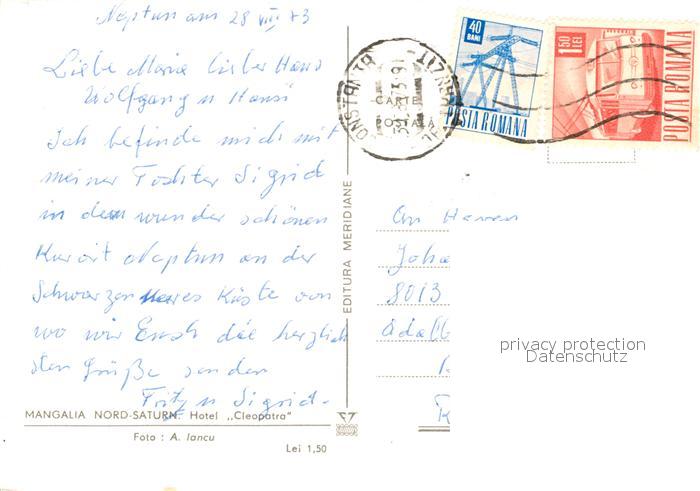 Neptun am 28 VIII 73
Liebe Maria lieber Hans
Wolfgang u Hansi
Ich befinde mich mit
meiner Tochter Sigrid
in dem wunder schönen
Kurort Neptun an der
Schwarzen Meeres Küste von
wo wir Euch die herzlich
sten Grüße senden
Fritz u Sigrid-
MANGALIA NORD-SATURN. Hotel „Cleopatra"
Foto : A. Iancu
Lei 1,50
EDITURA MERIDIANE
CARTE
POȘTALĂ
40
BANI
POSTA ROMANA
1,50 LEI
POSTA ROMANA
An Herren
Joha
8013
privacy protection
Datenschutz